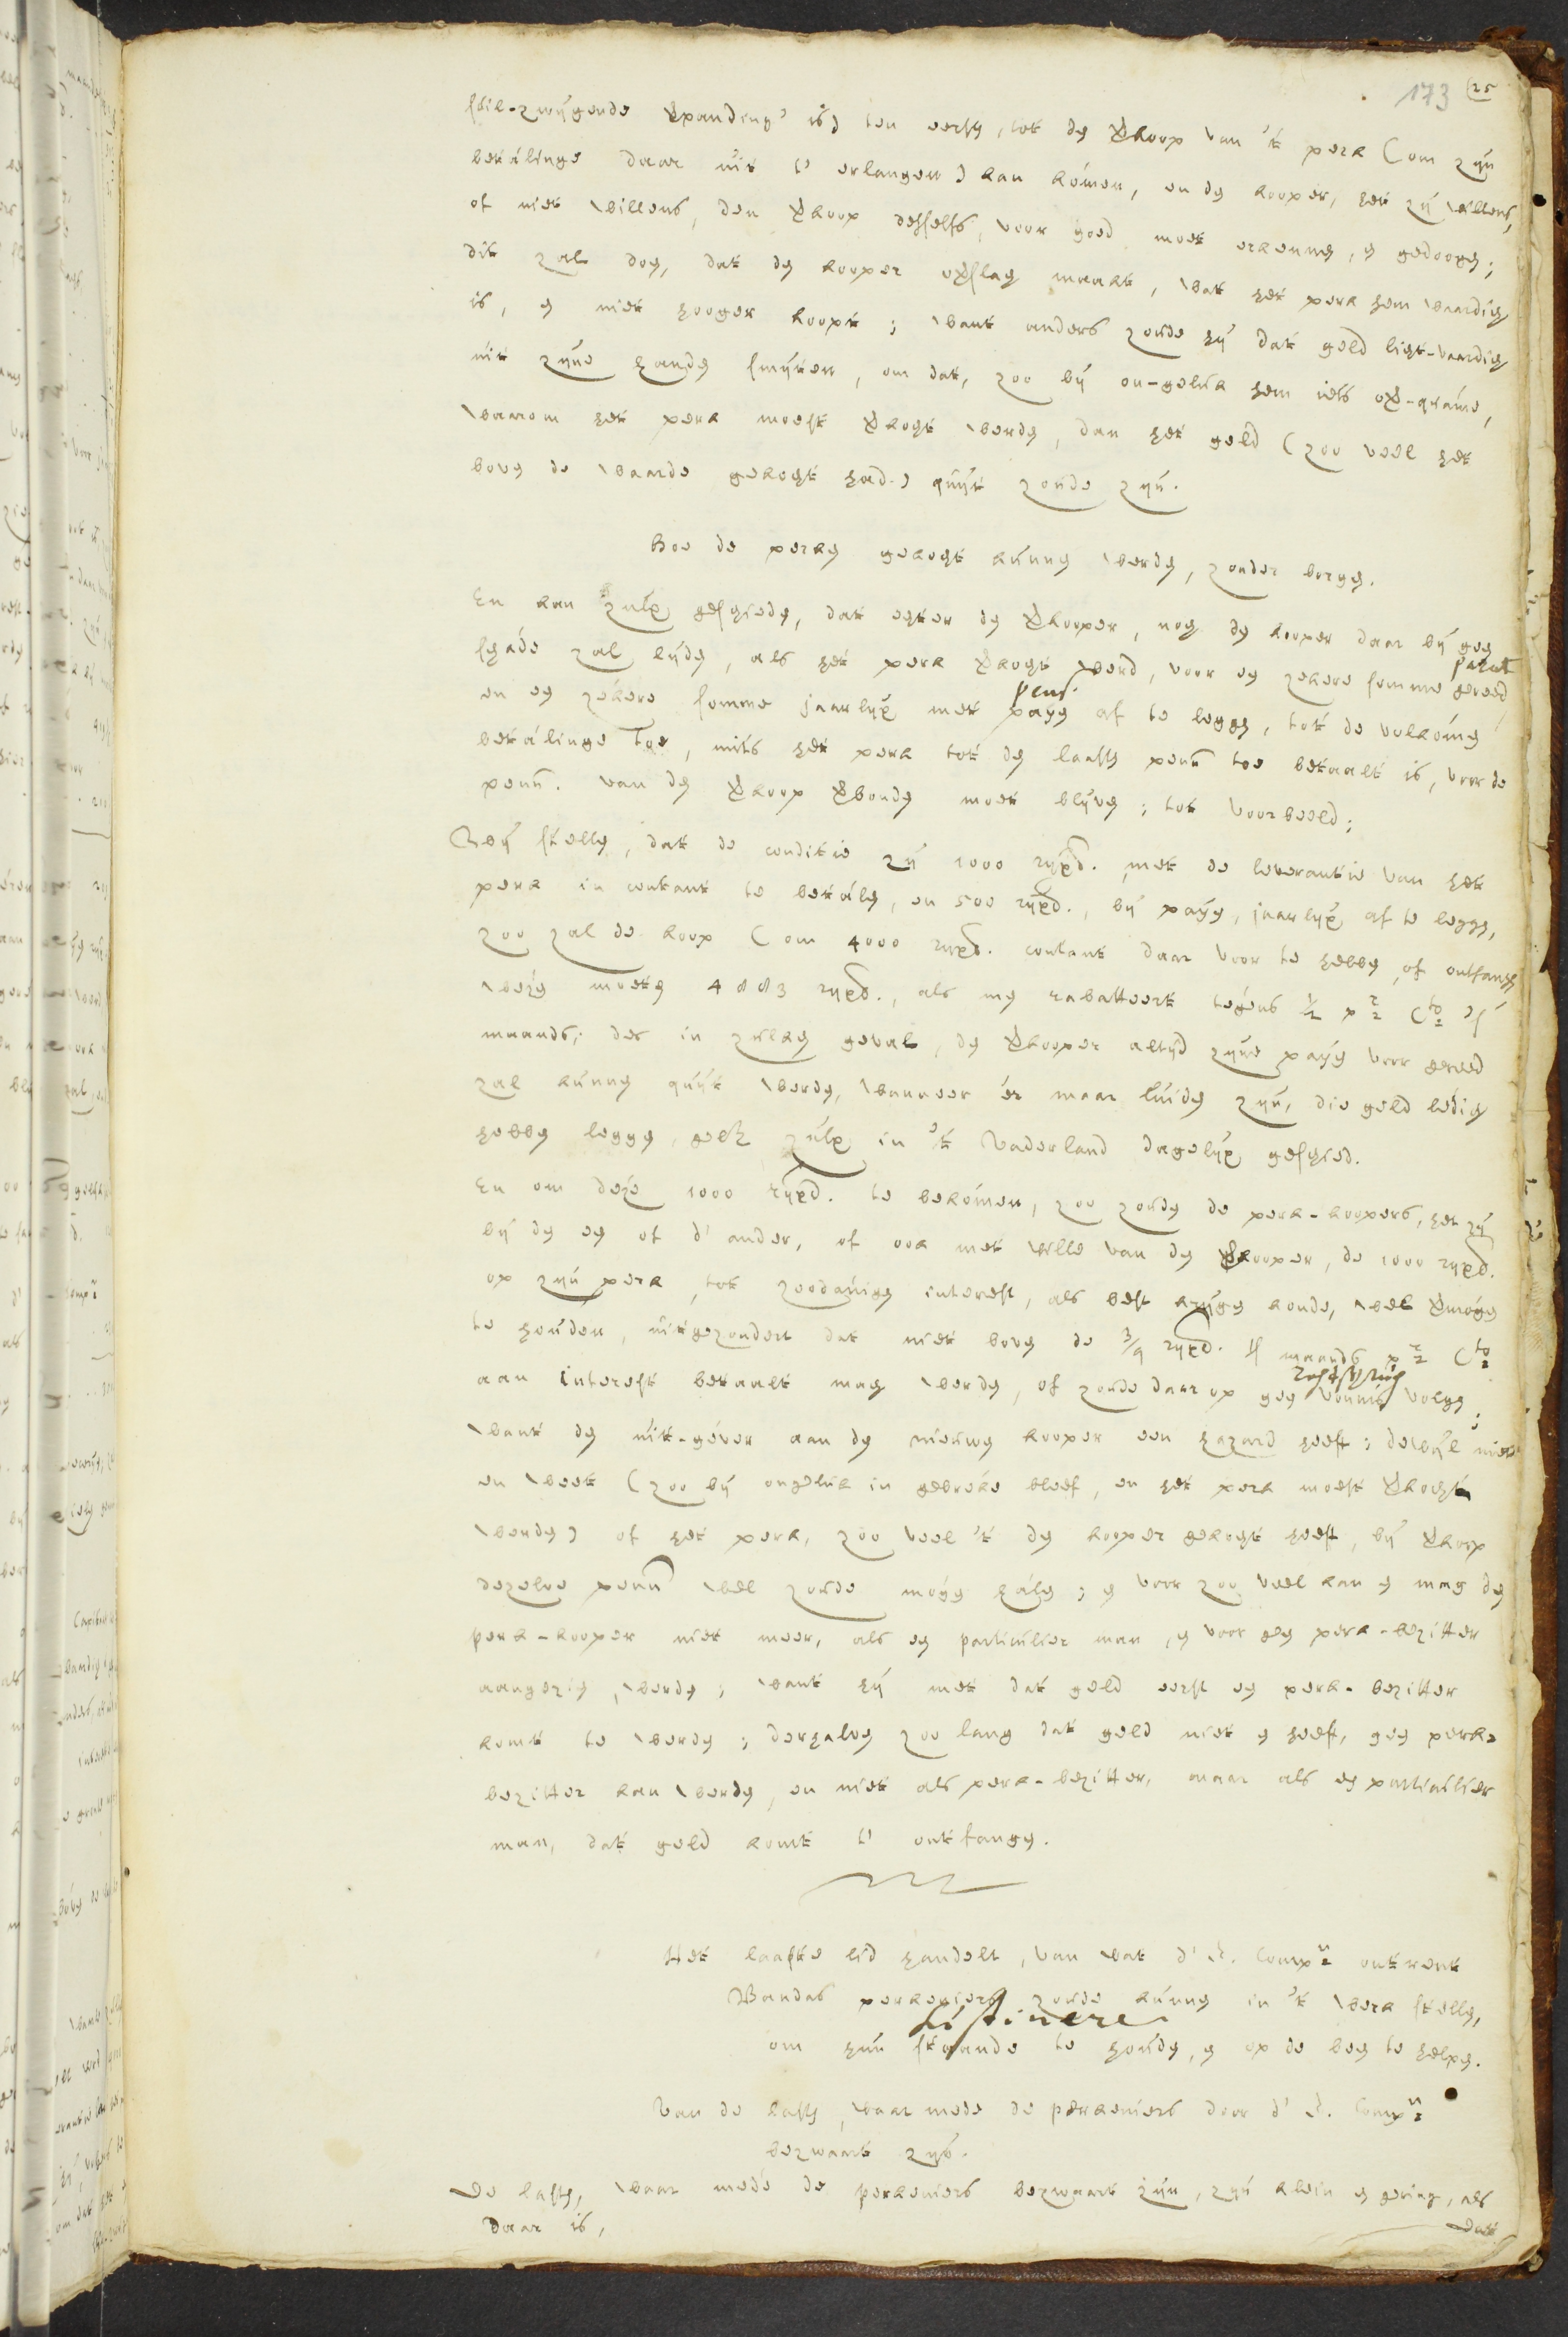 173 (25
stil-zwijgende verpanding' is) ten eersten, tot den verkoop van 't perk (om zijn
betálinge daar uit t' erlangen) kan kómen, en den kooper, het zij willens,
of niet willens, den verkoop desselfs, voor goed moet erkennen, en gedoogen;
dit zal doen, dat den kooper opslag maakt, wat het perk hem waardig
is, en niet hooger koopt; want anders zoude hij dat geld ligt-vaardig
uit zijne handen smijten, om dat, zoo bij on-geluk hem iets over-quáme,
waarom het perk moest verkogt werden, dan het geld (zoo veel het
boven de waarde gekogt had.) quijt zoude zijn.
Hoe de perken gekogt kunnen werden, zonder borgen.
En kan zulx geschieden, dat egter den verkooper, nog den kooper daar bij geen
scháde zal lijden, als het perk verkogt werd, voor een zekere somme gereed
paraat
en een zekere somme jaarlijx met paijen af te leggen, tot de volkómen
pens.
betálinge toe, mits het perk tot den laasten penn toe betaalt is, voor de
penn. van den verkoop verbonden moet blijven; tot voorbeeld;
Wij stellen, dat de conditie zij 1000 rijxd. met de leverantie van het
perk in contant te betálen, en 500 rijxd., bij paijen, jaarlijx af te leggen,
zoo zal de koop (om 4000 rijxd. contant daar voor te hebben, of ontfangen,
wezen moeten 4883 rijxd., als men rabatteert tegens 1/2 pr Cto 's
maands; des in zulken geval, den verkooper altijd zijne paijen voor gereed
zal kunnen quijt werden, wanneer 'er maar luiden zijn, die geld ledig
hebben leggen, gelk zulx in 't Vaderland dagelijx geschied.
En om deze 1000 rijxd. te bekómen, zoo zouden de perk-koopers, het zij
bij den een of d' ander, of ook met wille van den verkooper, de 1000 rijxd.
op zijn perk, tot zoodánigen interest, als best krijgen konde, wel vermógen
te houden, uitgezondert dat niet boven de 3/4 rijxd. 's maands pr Cto
aan interest betaalt mag werden, of zoude daar op geen vonnis volgen;
want den uit-gever aan den nieuwen kooper een hazard heeft; dewijl niet
en weet (zoo bij ongeluk in gebreke bleef, en het perk moest verkogt
werden) of het perk, zoo veel 't den kooper gekogt heeft, bij verkoop
dezelve penn wel zoude mogen hálen; en voor zoo veel kan en mag den
perk-kooper niet meer, als een particulier man, en voor geen perk-bezitter
aangezien, werden; want hij met dat geld eerst een perk-bezitter
komt te werden; derhalven zoo lang dat geld niet en heeft, geen perk-
bezitter kan werden, en niet als perk-bezitter, maar als een particulier
man, dat geld komt t' ontfangen.
Het laaste lid handelt, van wat d' E. Compe ontrent
Bandas perkeniers zoude kunnen in 't werk stellen,
om hun staande te houden, en op de been te helpen.
Van de lasten, waar mede de perkeniers door d' E. Compe
bezwaart zijn.
De lasten, waar mede de perkeniers bezwaart zijn, zijn klein en gering, als
Daar is,
Dat